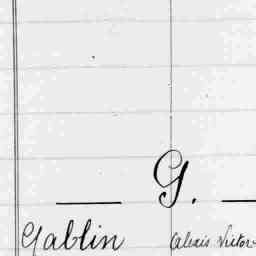 G.
Gablin Alexis Victor